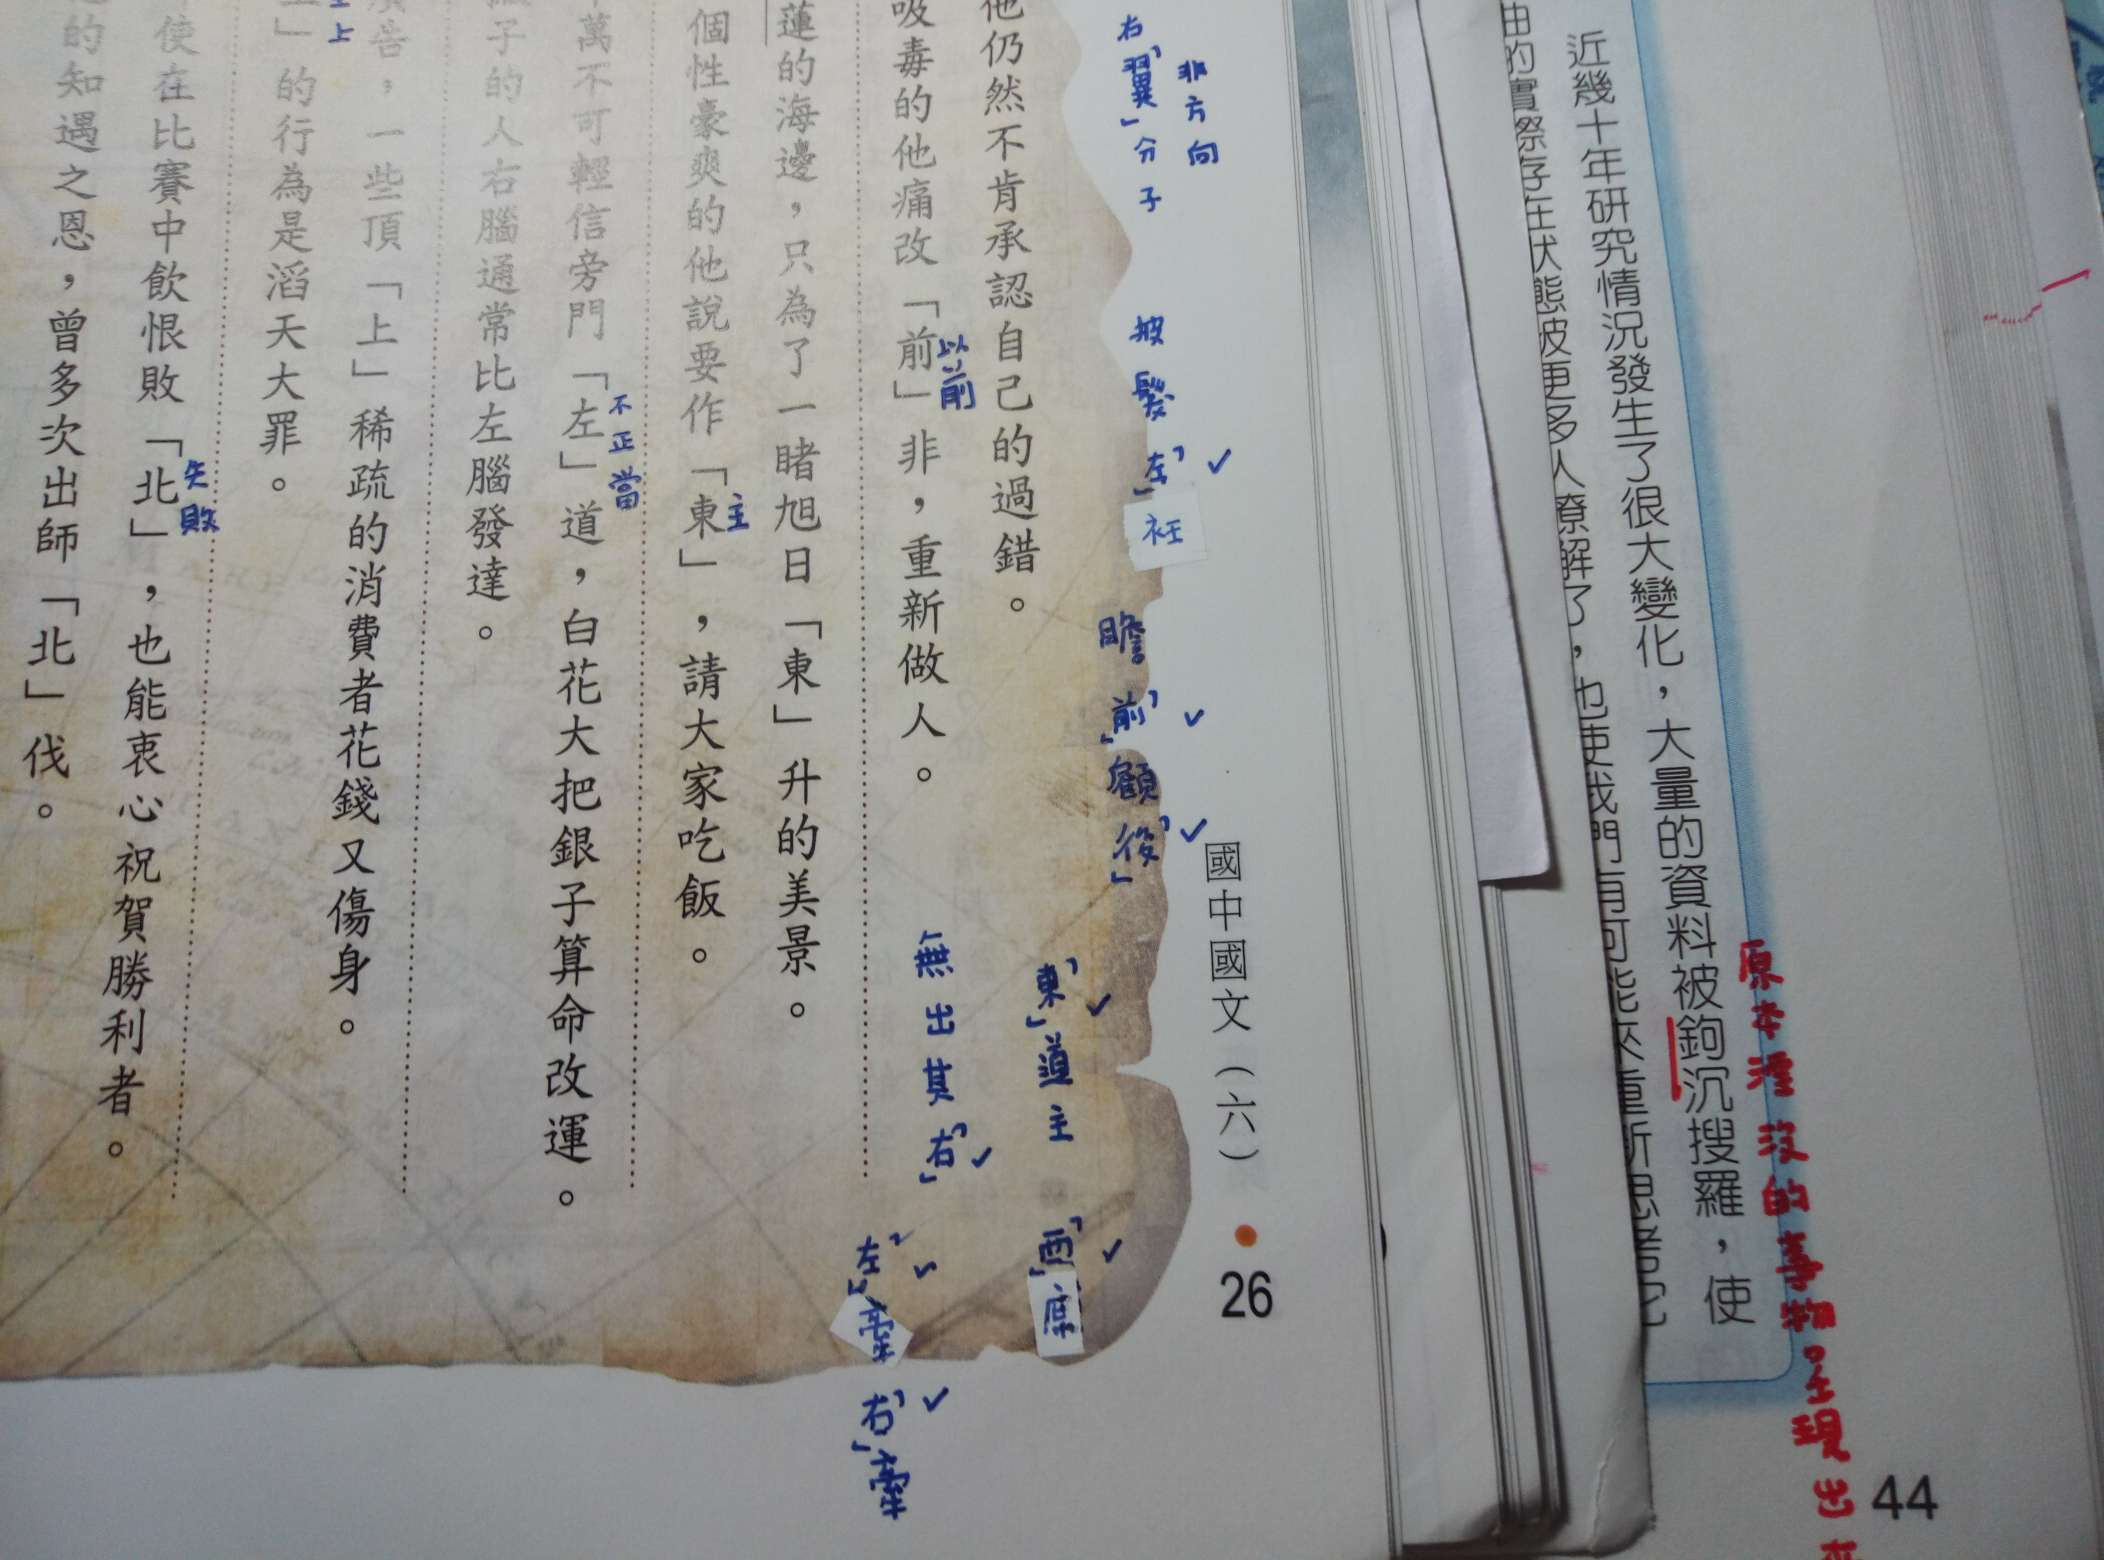 近幾十年研究情況發生了很大變化，大量的資料被鉤沉搜羅，使
的實際存在狀態被更多人瞭解了，也使我們有可能來重新思考它
原本湮沒的事物呈現出來
44
右「翼」分子
非方向
披髮「左」衽
瞻「前」顧「後」
「東」道主
「西」席
無出其「右」
「左」牽「右」牽
國中國文（六）
26
他仍然不肯承認自己的過錯。
吸毒的他痛改「前」非，重新做人。
以前
蓮的海邊，只為了一睹旭日「東」升的美景。
個性豪爽的他說要作「東」，請大家吃飯。
主
萬不可輕信旁門「左」道，白花大把銀子算命改運。
不正當
子的人右腦通常比左腦發達。
廣告，一些頂「上」稀疏的消費者花錢又傷身。
上
」的行為是滔天大罪。
使在比賽中飲恨敗「北」，也能衷心祝賀勝利者。
失敗
的知遇之恩，曾多次出師「北」伐。